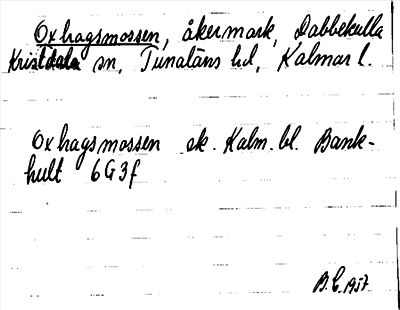 Oxhagsmossen, åkermark, Dabbekulla
Kristdala sn, Tunaläns hd, Kalmar l.
Oxhagsmossen ek. Kalm. bl. Bank-
hult 6G3f
B.L. 1957